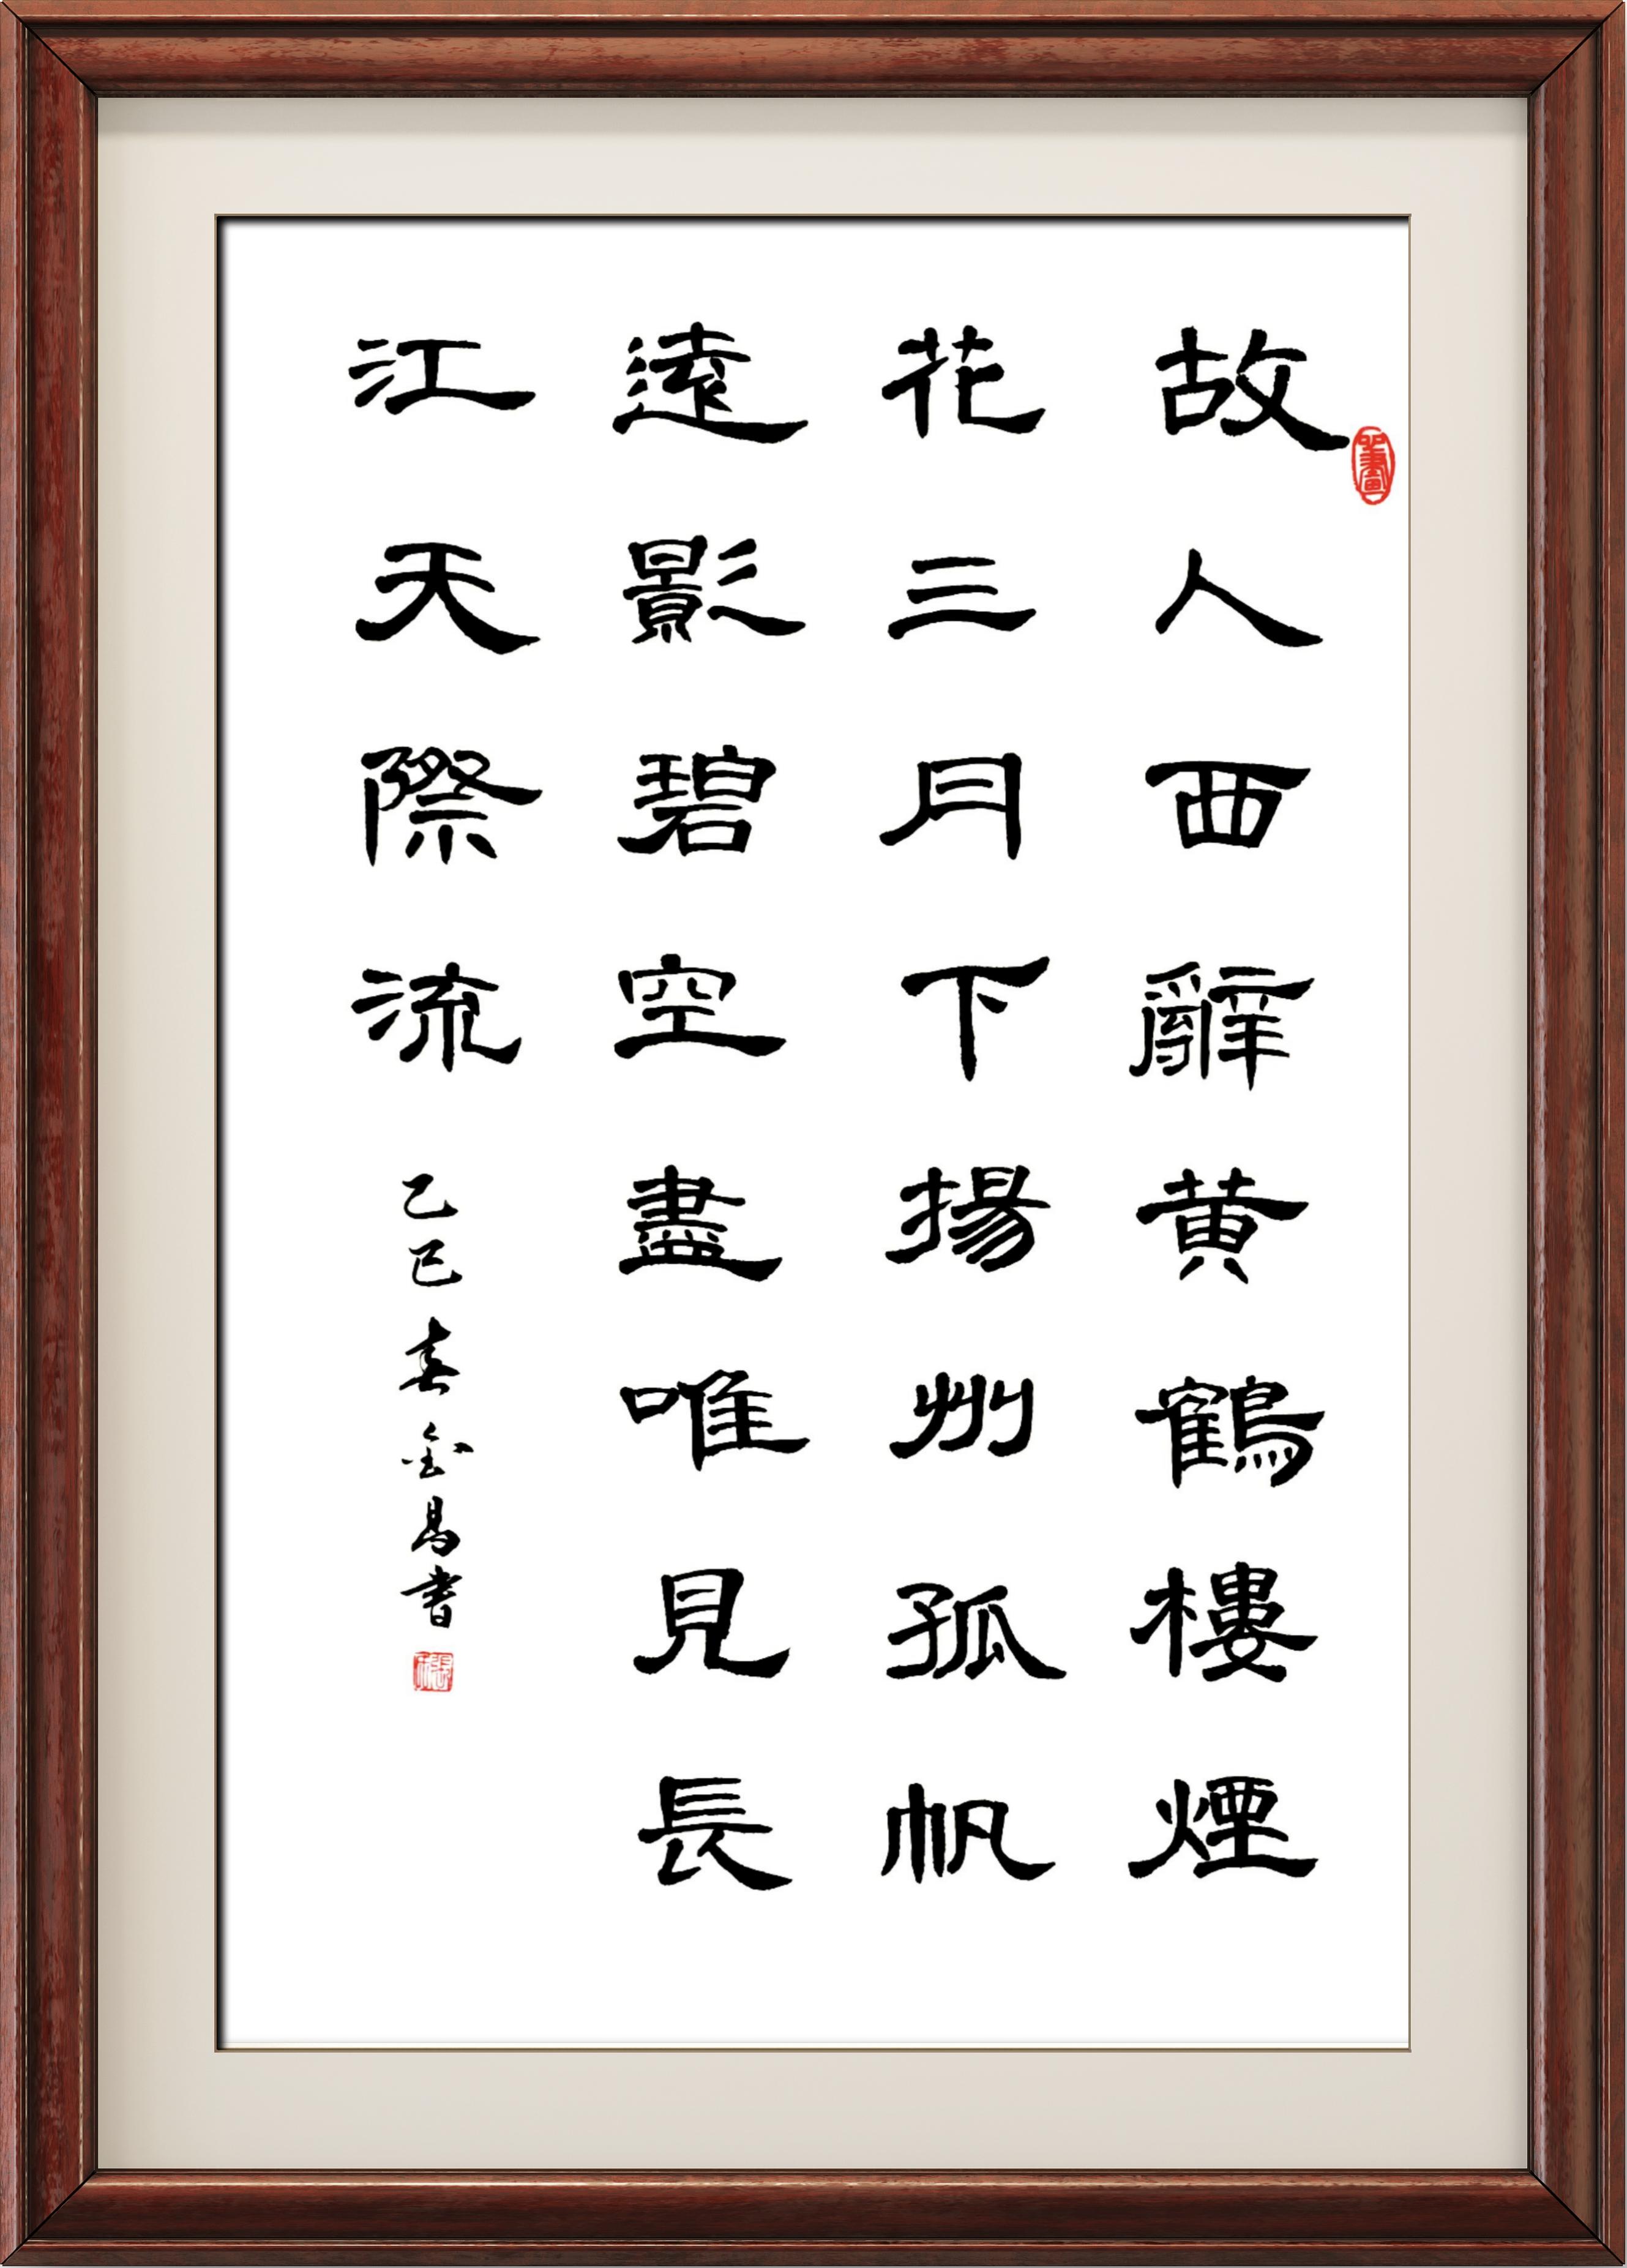 故人西辭黄鶴樓煙
花三月下揚州孤帆
遠影碧空盡唯見長
江天際流
乙巳春金昌書